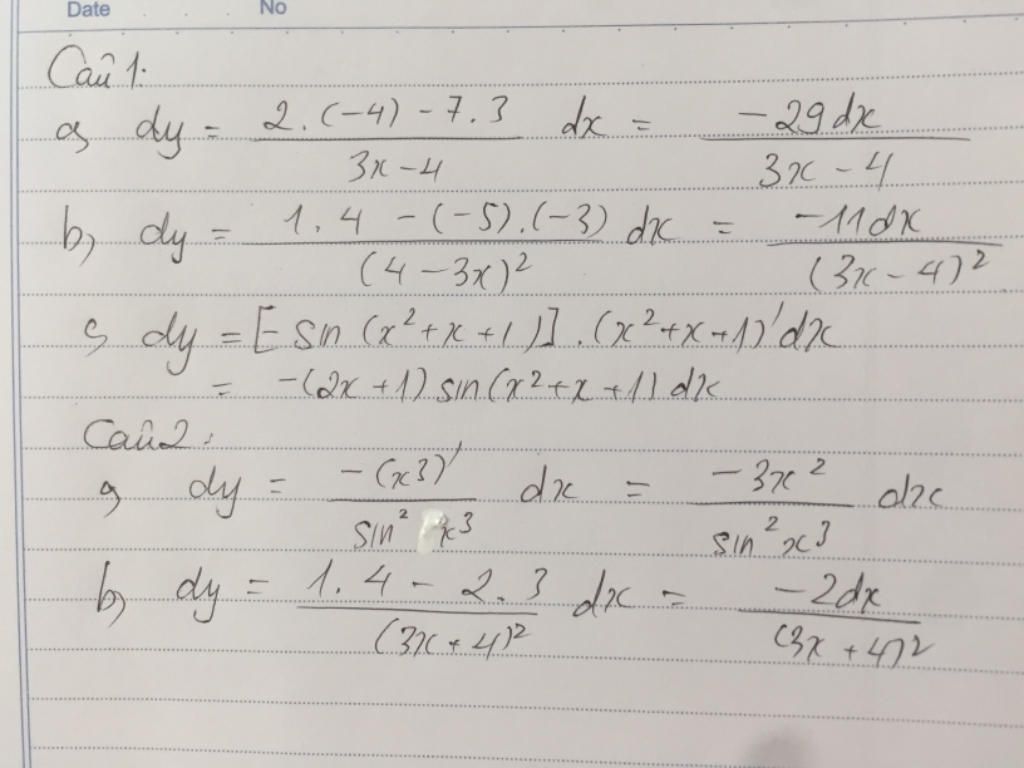 Date No
Câu 1:
a, dy = \frac{2.(-4) - 7.3}{3x - 4} dx = \frac{-29dx}{3x - 4}
b, dy = \frac{1.4 - (-5).(-3)}{(4 - 3x)^2} dx = \frac{-11dx}{(3x - 4)^2}
c, dy = [- sin (x² + x + 1)] . (x² + x + 1)' dx
= -(2x + 1) sin(x² + x + 1) dx
Câu 2:
a, dy = \frac{-(x3)'}{sin^2 x^3} dx = \frac{-3x^2}{sin^2 x^3} dx
b, dy = \frac{1.4 - 2.3}{(3x + 4)^2} dx = \frac{-2dx}{(3x + 4)^2}